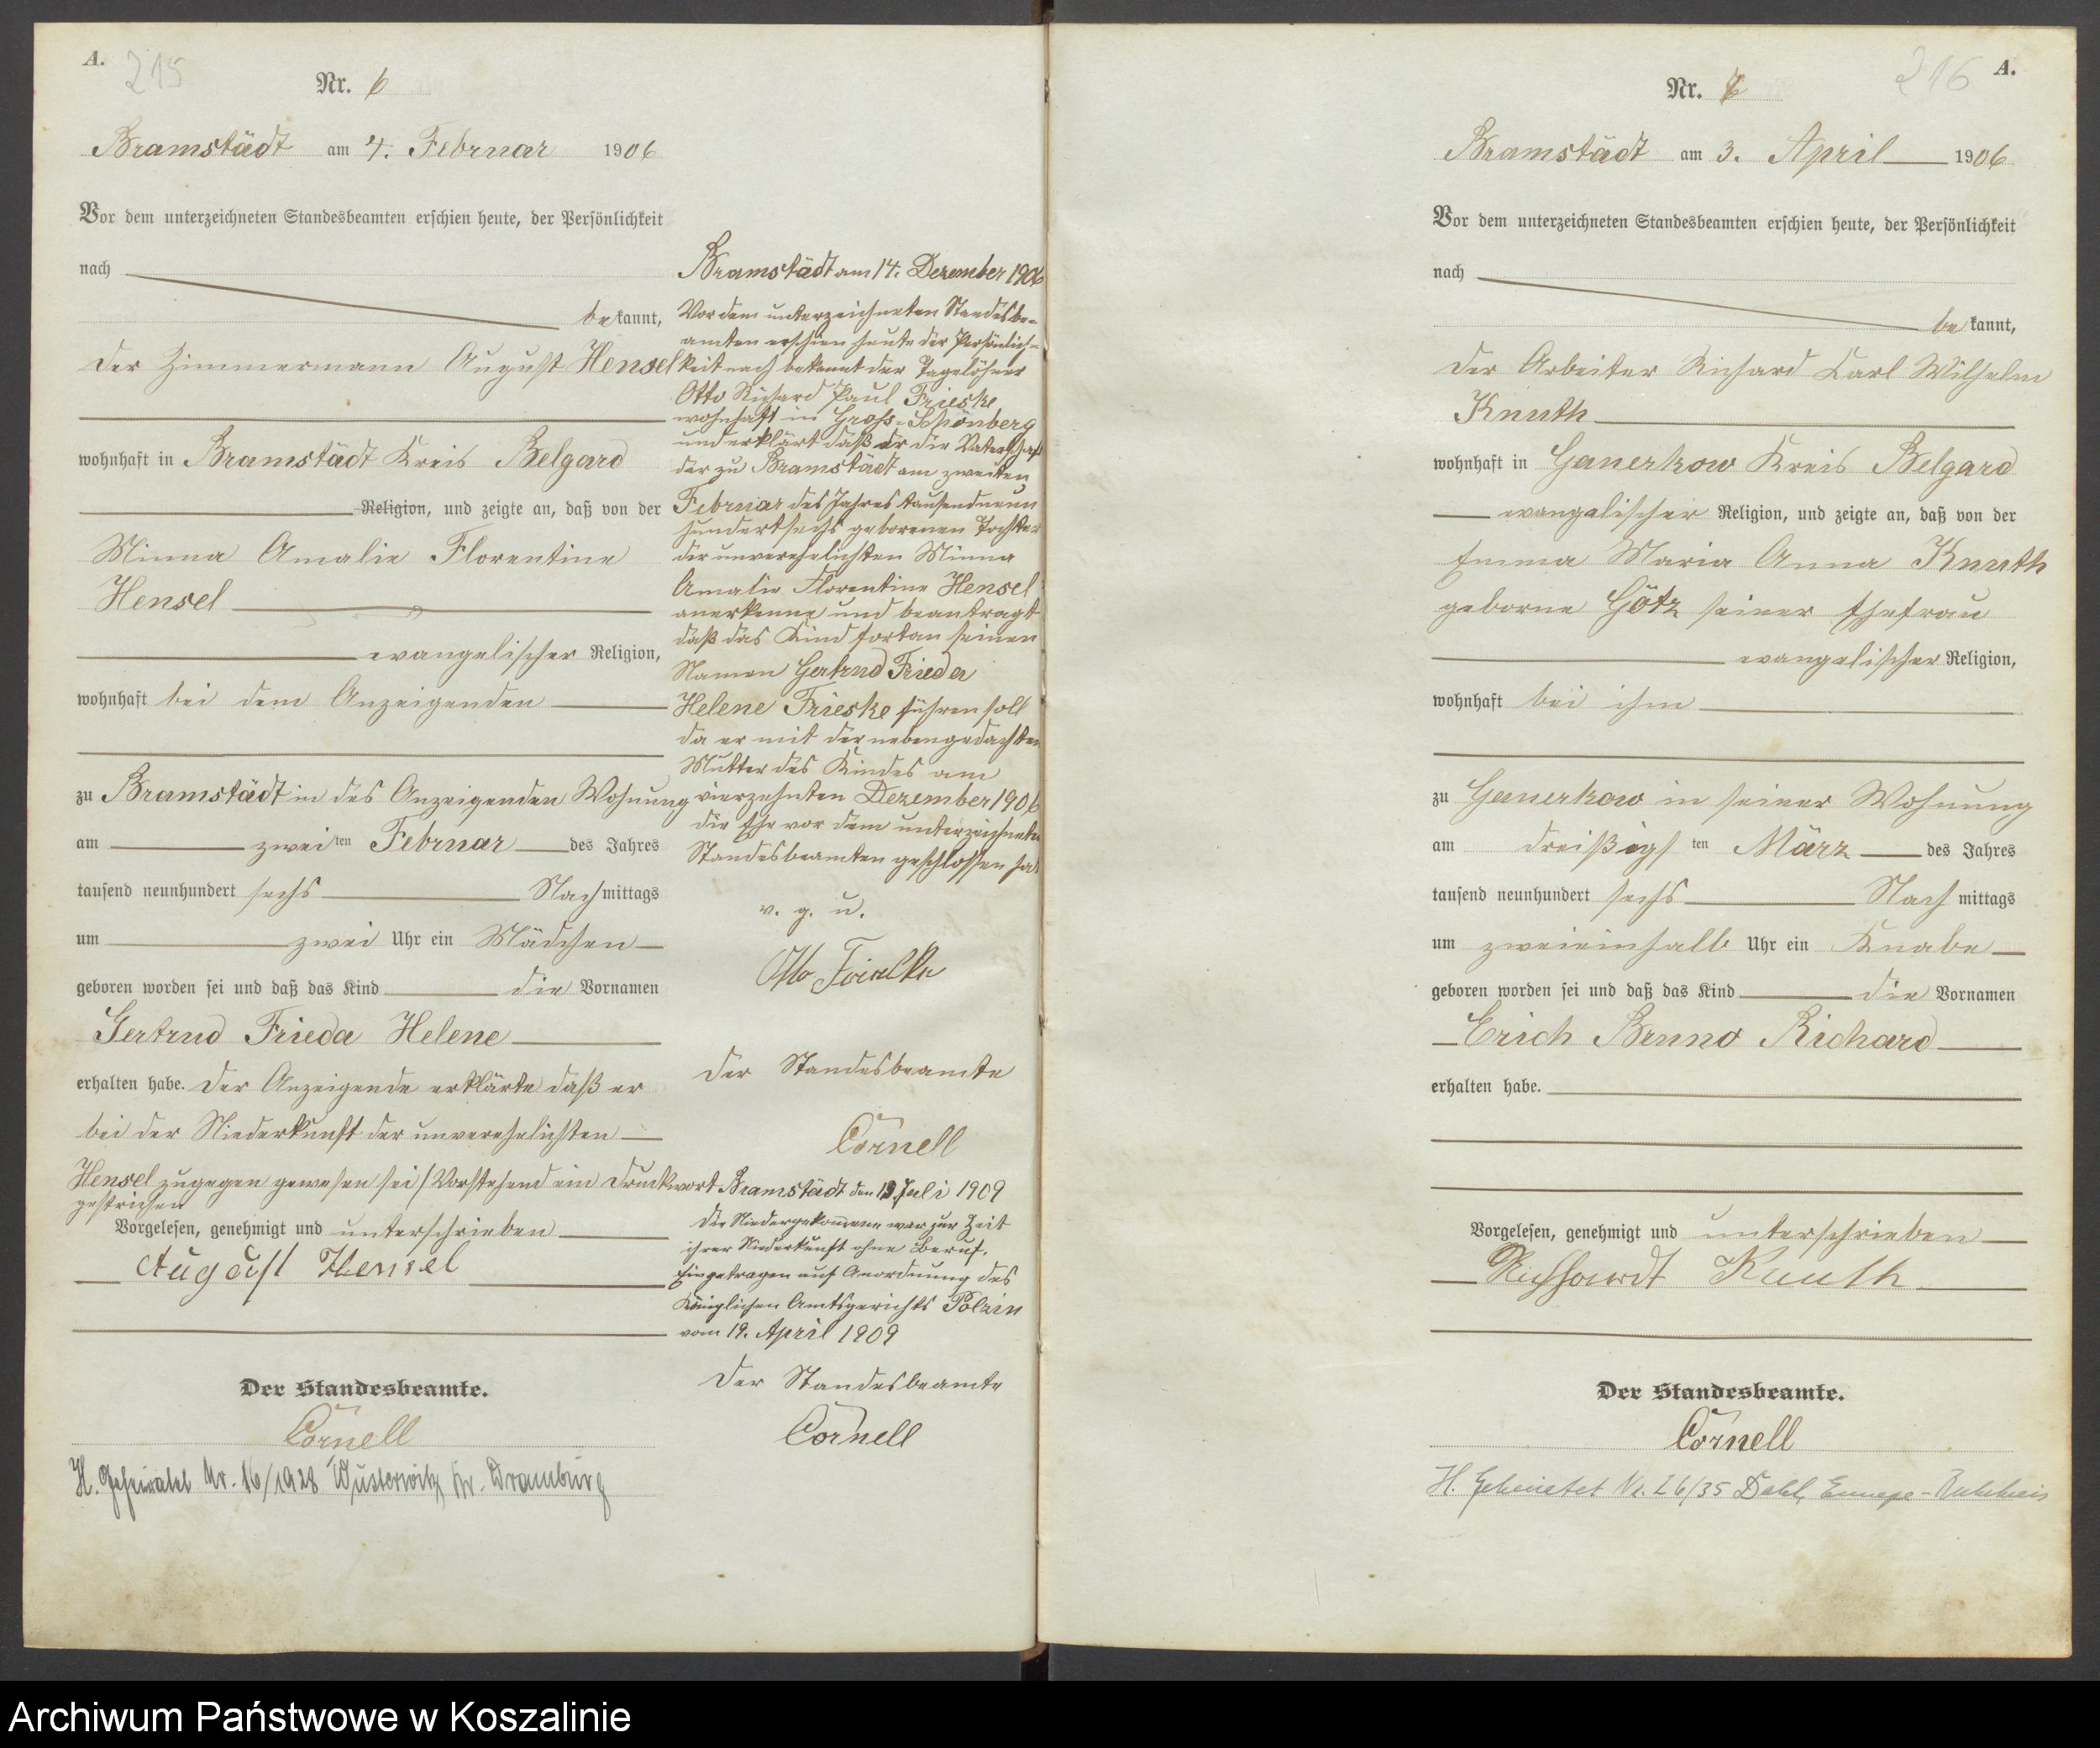 A.
215
Nr. 6
Bramstädt am 4. Februar 1906
Vor dem unterzeichneten Standesbeamten erschien heute, der Persönlichkeit
nach
bekannt,
der Zimmermann August Hensel
wohnhaft in Bramstädt Kreis Belgard
Religion, und zeigte an, daß von der
Minna Amalie Florentine
Hensel
evangelischer Religion,
wohnhaft bei dem Anzeigenden
zu Bramstädt in des Anzeigenden Wohnung
am zweiten Februar des Jahres
tausend neunhundert sechs Nachmittags
um zwei Uhr ein Mädchen
geboren worden sei und daß das Kind die Vornamen
Gertrud Frieda Helene
erhalten habe. Der Anzeigende erklärte daß er
bei der Niederkunft der unverehelichten
Hensel zugegen gewesen sei / Vorstehend ein Druckwort
gestrichen
Vorgelesen, genehmigt und unterschrieben
August Hensel
Der Standesbeamte.
Cornell
H. Geheiratet Nr. 16/1928 Wusterwitz Kr. Dramburg
Bramstädt am 14. Dezember 1906
Vor dem unterzeichneten Standesbe-
amten erschien heute der Persönlich-
keit nach bekannt der Tagelöhner
Otto Richard Paul Frieske
wohnhaft in Groß-Schönberg
und erklärt daß er die Vaterschaft
der zu Bramstädt am zweiten
Februar des Jahres tausendneun
hundertsechs geborenen Tochter
der unverehelichten Minna
Amalie Florentine Hensel
anerkenne und beantragt
daß das Kind fortan seinen
Namen Gertrud Frieda
Helene Frieske führen soll
da er mit der nebengedachten
Mutter des Kindes am
vierzehnten Dezember 1906
die Ehe vor dem unterzeichneten
Standesbeamten geschlossen hat
v. g. u.
Otto Frieske
Der Standesbeamte
Cornell
Bramstädt den 19. Juli 1909
Die Niedergekommene war zur Zeit
ihrer Niederkunft ohne Beruf.
Eingetragen auf Anordnung des
Königlichen Amtsgerichts Polzin
vom 19. April 1909
Der Standesbeamte
Cornell
216
A.
Nr. 7
Bramstädt am 3. April 1906
Vor dem unterzeichneten Standesbeamten erschien heute, der Persönlichkeit
nach
bekannt,
der Arbeiter Richard Carl Wilhelm
Knuth
wohnhaft in Ganerkow Kreis Belgard
evangelischer Religion, und zeigte an, daß von der
Emma Maria Anna Knuth
geborne Götz seiner Ehefrau
evangelischer Religion,
wohnhaft bei ihm
zu Ganerkow in seiner Wohnung
am dreißigsten März des Jahres
tausend neunhundert sechs Nachmittags
um zweieinhalb Uhr ein Knabe
geboren worden sei und daß das Kind die Vornamen
Erich Benno Richard
erhalten habe.
Vorgelesen, genehmigt und unterschrieben
Richhardt Knuth
Der Standesbeamte.
Cornell
H. Geheiratet Nr. 26/35 Dahl, Ennepe-Ruhrkreis
Archiwum Państwowe w Koszalinie